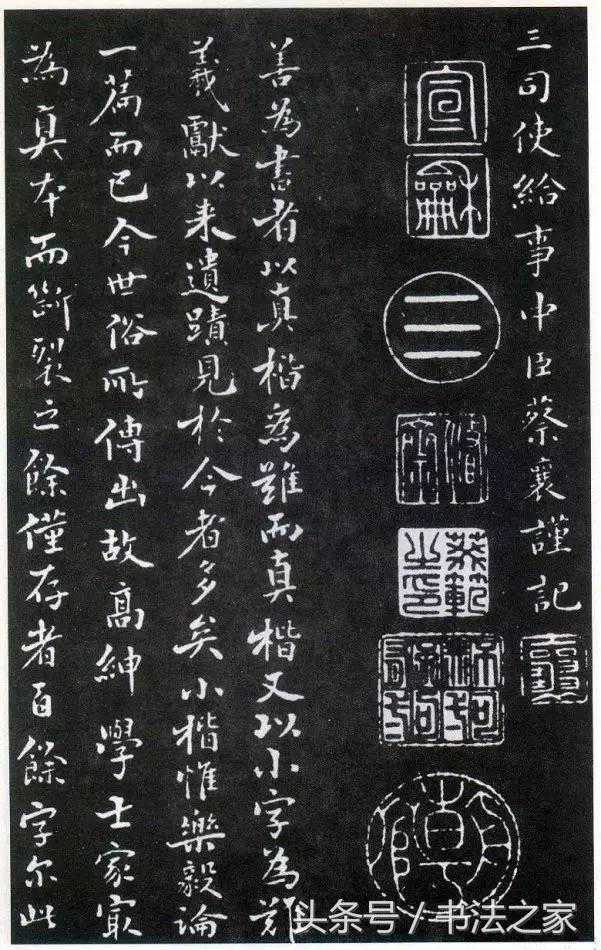 三司使給事中臣蔡襄謹記
宣龢
善為書者以真楷為難而真楷又以小字為難
羲獻以来遺蹟見於今者多矣小楷惟樂毅論
一篇而已今世俗所傳出故高紳學士家㝡
為真本而斷裂之餘僅存者百餘字尔此
头条号/书法之家